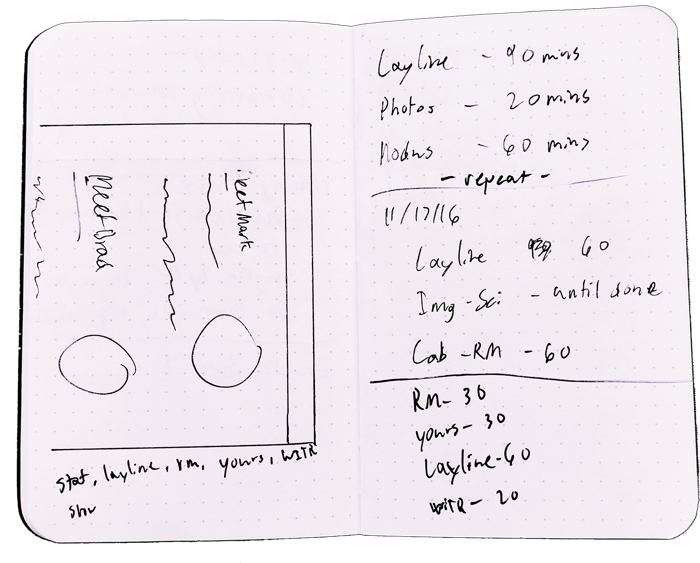 Meet Mark
Meet Brad
stat, layline, rm, yours, write
Layline - 90 mins
Photos - 20 mins
- 60 mins
- repeat -
11/17/16
Layline 60
Img-Sci - until done
Cab-RM - 60
RM - 30
yours - 30
Layline - 60
write - 20